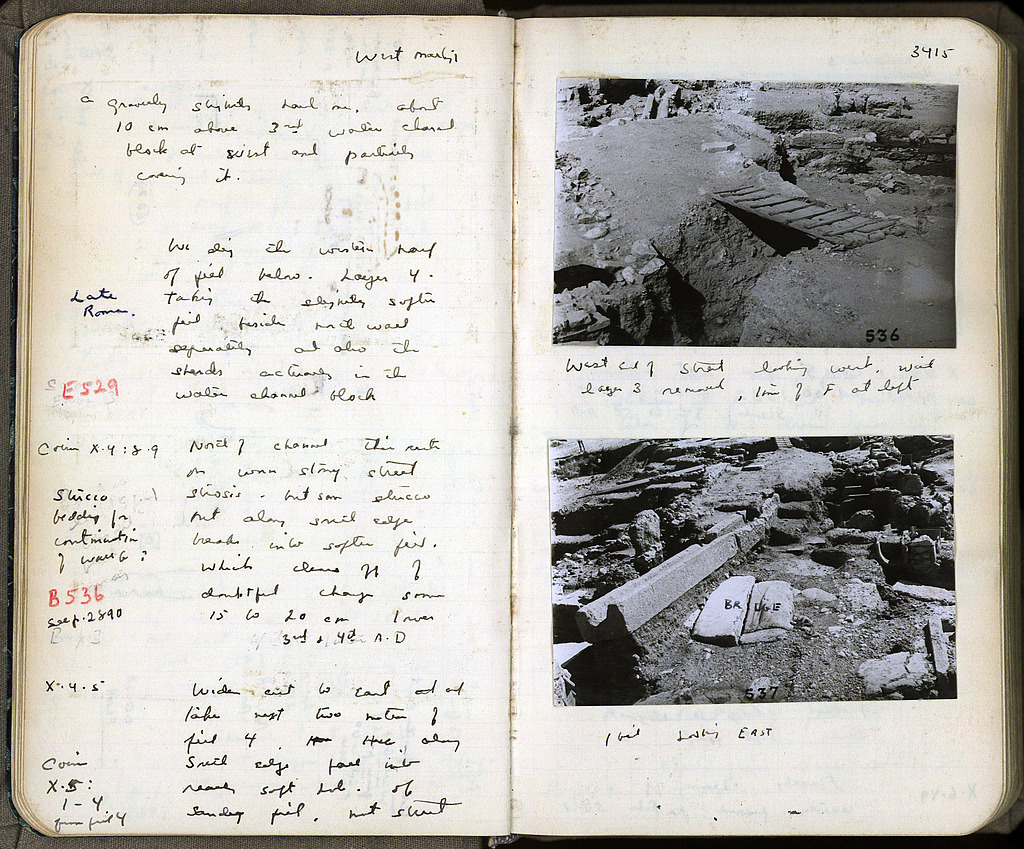 West
3415
a gravelly slightly hard one, about
10 cm above 3rd water channel
block at west and partially
covering it.
We dig the western half
of fill below. Layer 4.
Late
Roman.
Taking the slightly softer
fill beside north wall
separately and also the
sherds actually in the
water channel block
E529
Coin X.4:8.9
North of channel this rests
on worn stony street
but some stucco
Stucco
bedding for
continuation
of wall G?
but along south edge
breaks into softer fill.
which cleans off of
B536
see p. 2890
doubtful change some
15 to 20 cm lower
3rd & 4th A.D
X.4.5
Widen cut to east and
take next two meters of
fill 4. along
Coin
X.5:
1-4
from fill 4
South edge into
sandy fill, not street
536
West end of street looking west, with
layer 3 removed, line of F at left
BRIDGE
537
Looking EAST